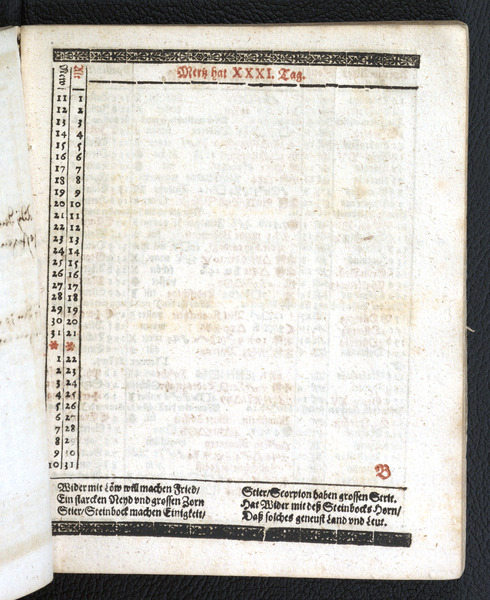 New Alt Mertz hat XXXI. Tag.
11 1
12 2
13 3
14 4
15 5
16 6
17 7
18 8
19 9
20 10
21 11
22 12
23 13
24 14
25 15
26 16
27 17
28 18
29 19
30 20
31 21
* *
1 22
2 23
3 24
4 25
5 26
6 2
7 28
8 2
9 30
10 31
B
Wider mit Löw will machen Fried/
Ein starcken Neyd vnd grossen Zorn
Stier/Steinbock machen Einigkeit/
Stier/Scorpion haben grossen Strit.
Hat Wider mit deß Steinbocks Horn/
Daß solches geneust Land vnd Leut.